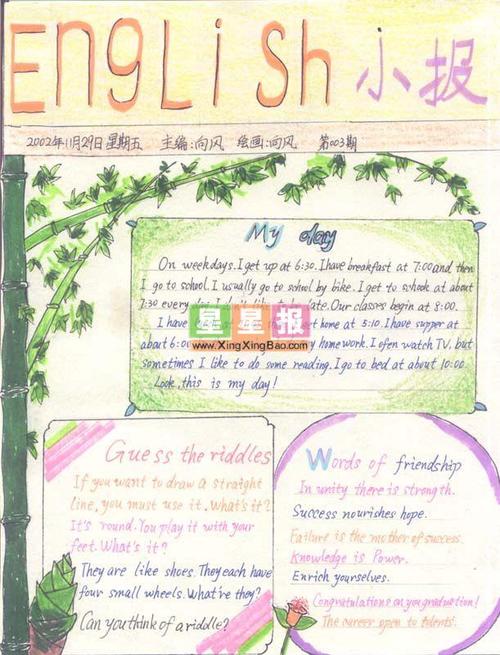 English 小报
2002年11月29日 星期五 主编:向风 绘画:向风 第003期
My day
On weekdays. I get up at 6:30. I have breakfast at 7:00 and then
I go to school. I usually go to school by bike. I get to school at about
7:30 every I don't like to be late. Our classes begin at 8:00.
I have home at 5:10. I have supper at
about 6:00 my homework. I ofen watch TV. but
sometimes I like to do some reading. I go to bed at about 10:00.
Look, this is my day!
星星报
www.XingXingBao.com
Guess the riddles
If you want to draw a straight
line, you must use it. What's it?
It's round. You play it with your
feet. What's it?
They are like shoes. They each have
four small wheels. What're they?
Can you think of a riddle?
Words of friendship
In unity there is strength.
Success nourishes hope.
Failure is the mother of success.
Knowledge is Power.
Enrich yourselves.
Congratulations on you graduation!
The career open to talents.